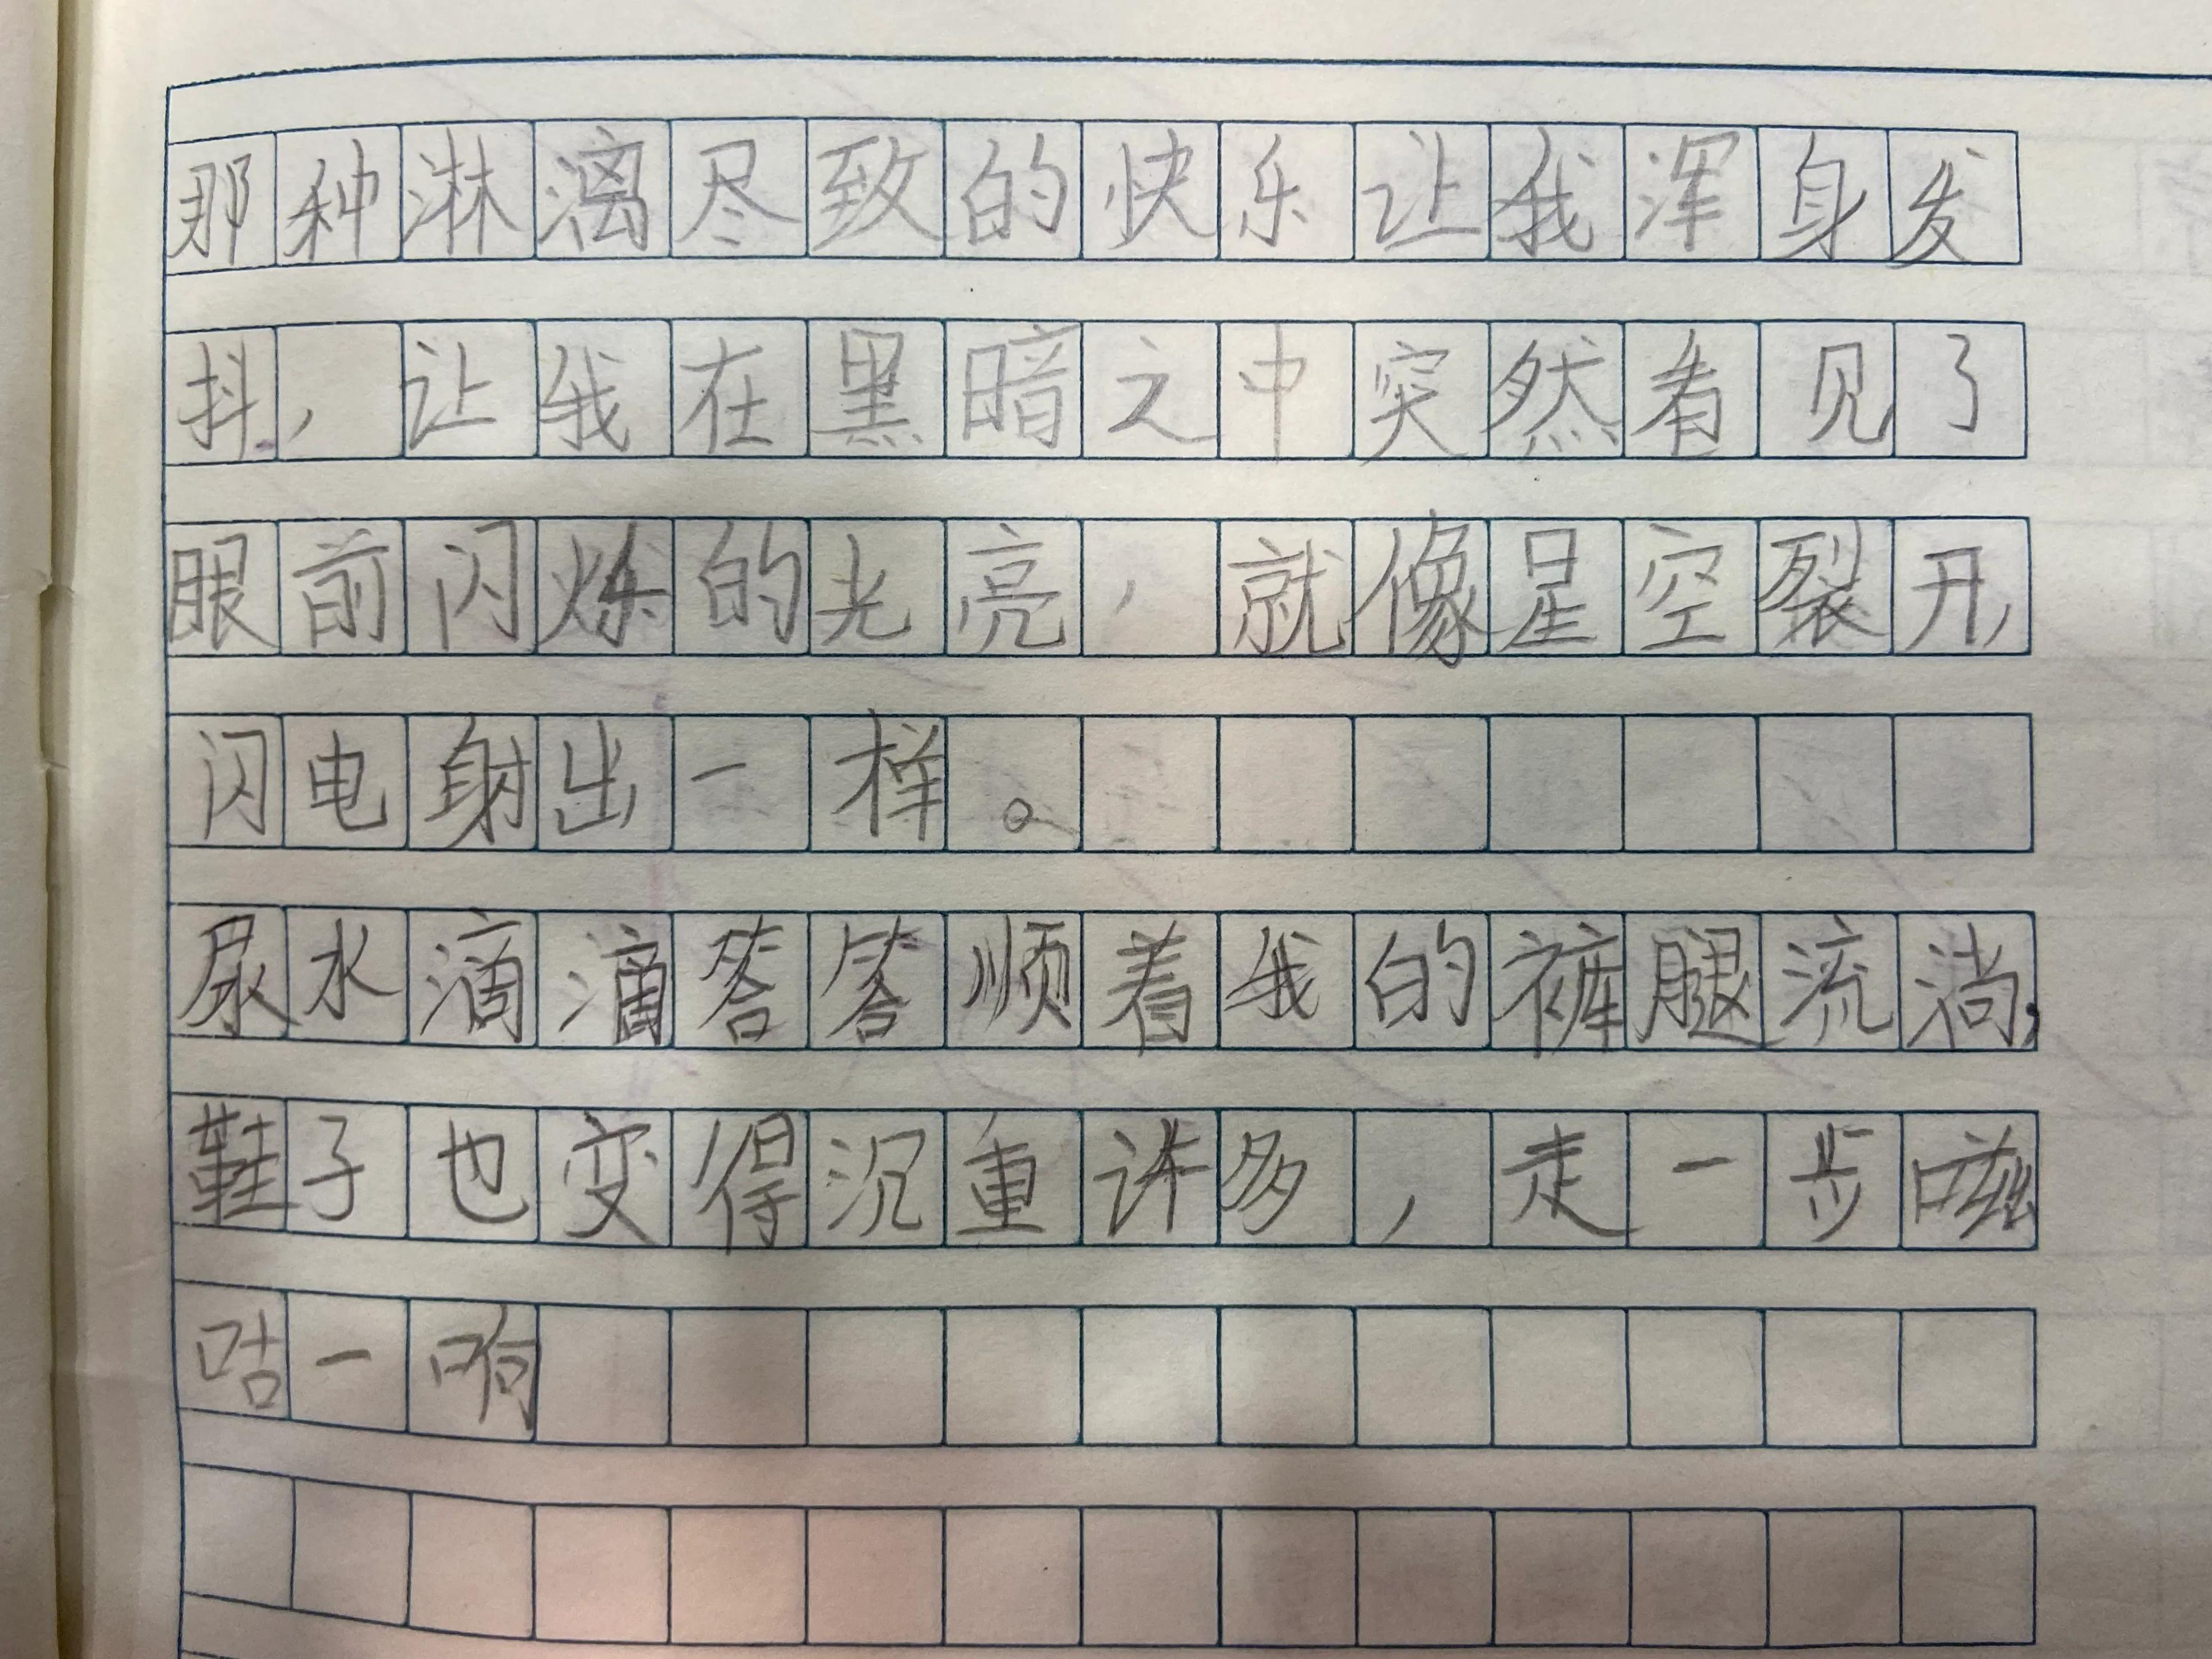 那种淋漓尽致的快乐让我浑身发
抖，让我在黑暗之中突然看见了
眼前闪烁的光亮，就像星空裂开，
闪电射出一样。
尿水滴滴答答顺着我的裤腿流淌，
鞋子也变得沉重许多，走一步嗞
咕一响